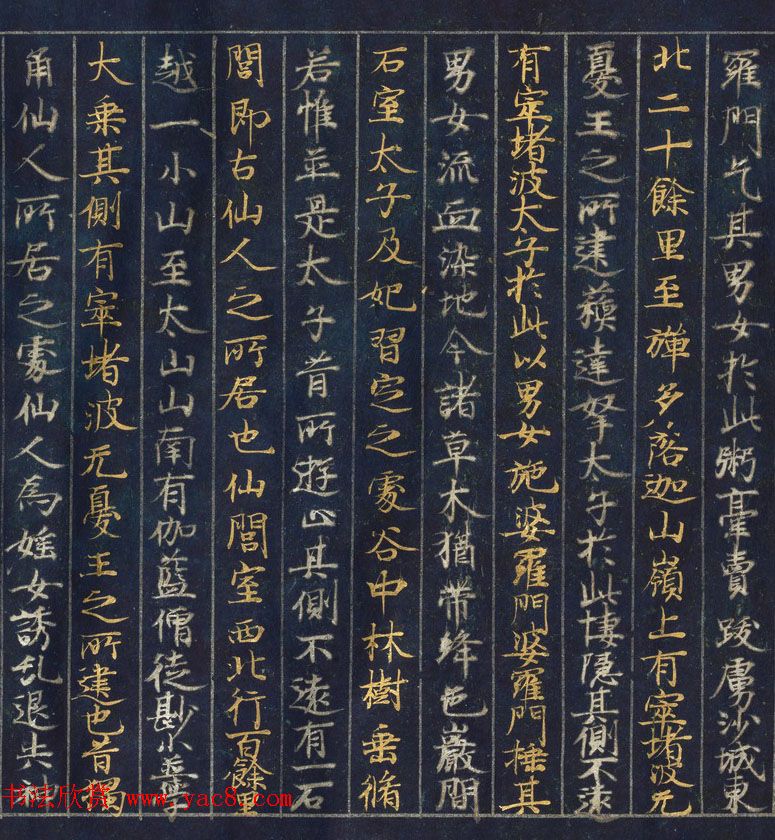 羅門乞其男女於此鬻賣跋虜沙城東
北二十餘里至彈多落迦山嶺上有窣堵波无
憂王之所建蘇達拏太子於此棲隱其側不遠
有窣堵波太子於此以男女施婆羅門婆羅門捶其
男女流血染地今諸草木猶帶絳色巖間
石室太子及妃習定之處谷中林樹垂條
若惟並是太子昔所遊止其側不遠有一石
閭即古仙人之所居也仙閭室西北行百餘里
越一小山至大山山南有伽藍僧徒尠少並學
大乘其側有窣堵波无憂王之所建也昔獨
角仙人所居之處仙人為婬女誘乱退失神
书法欣赏 www.yac8.com